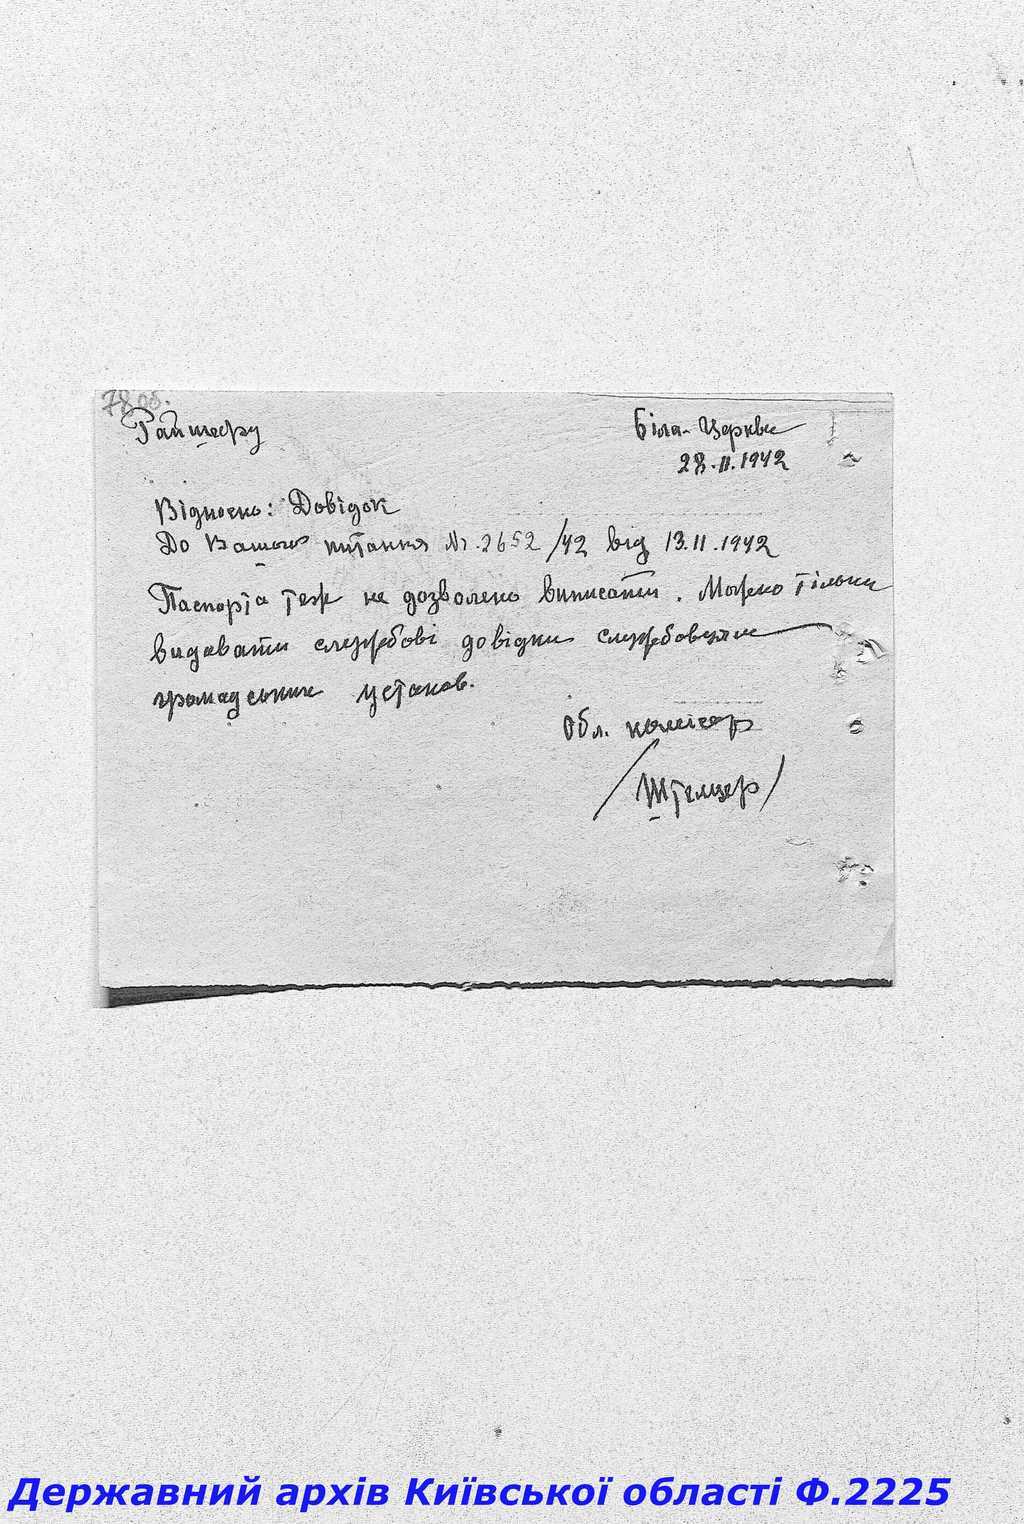 78 об.
Райшефу
Біла-Церква
28.11.1942
Відносно: Довідок
До Вашого питання Nr. 2652/42 від 13.11.1942
Паспорта теж не дозволено виписати. Можно тільки
видавати службові довідки службовцям
громадських установ.
Обл. комісар
/Штельцер/
Державний архів Київської області Ф.2225